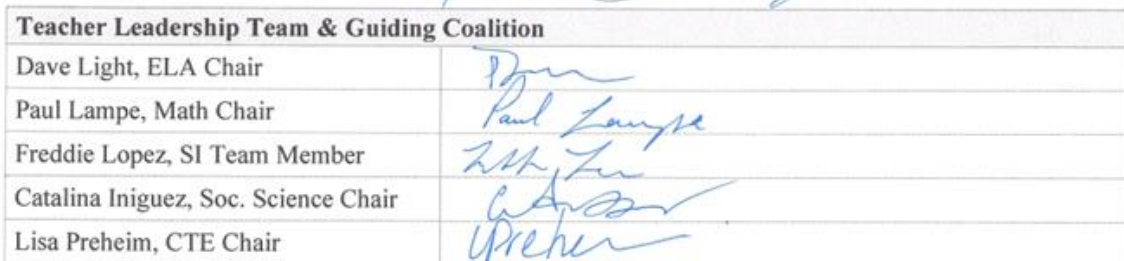 Teacher Leadership Team & Guiding Coalition
Dave Light, ELA Chair
Paul Lampe, Math Chair Paul Lampe
Freddie Lopez, SI Team Member
Catalina Iniguez, Soc. Science Chair
Lisa Preheim, CTE Chair